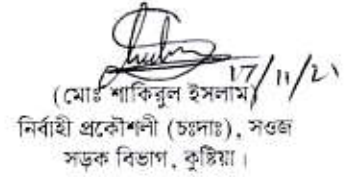 17/11/21
(মোঃ শাকিরুল ইসলাম)
নির্বাহী প্রকৌশলী (চঃদাঃ), সওজ
সড়ক বিভাগ, কুষ্টিয়া।